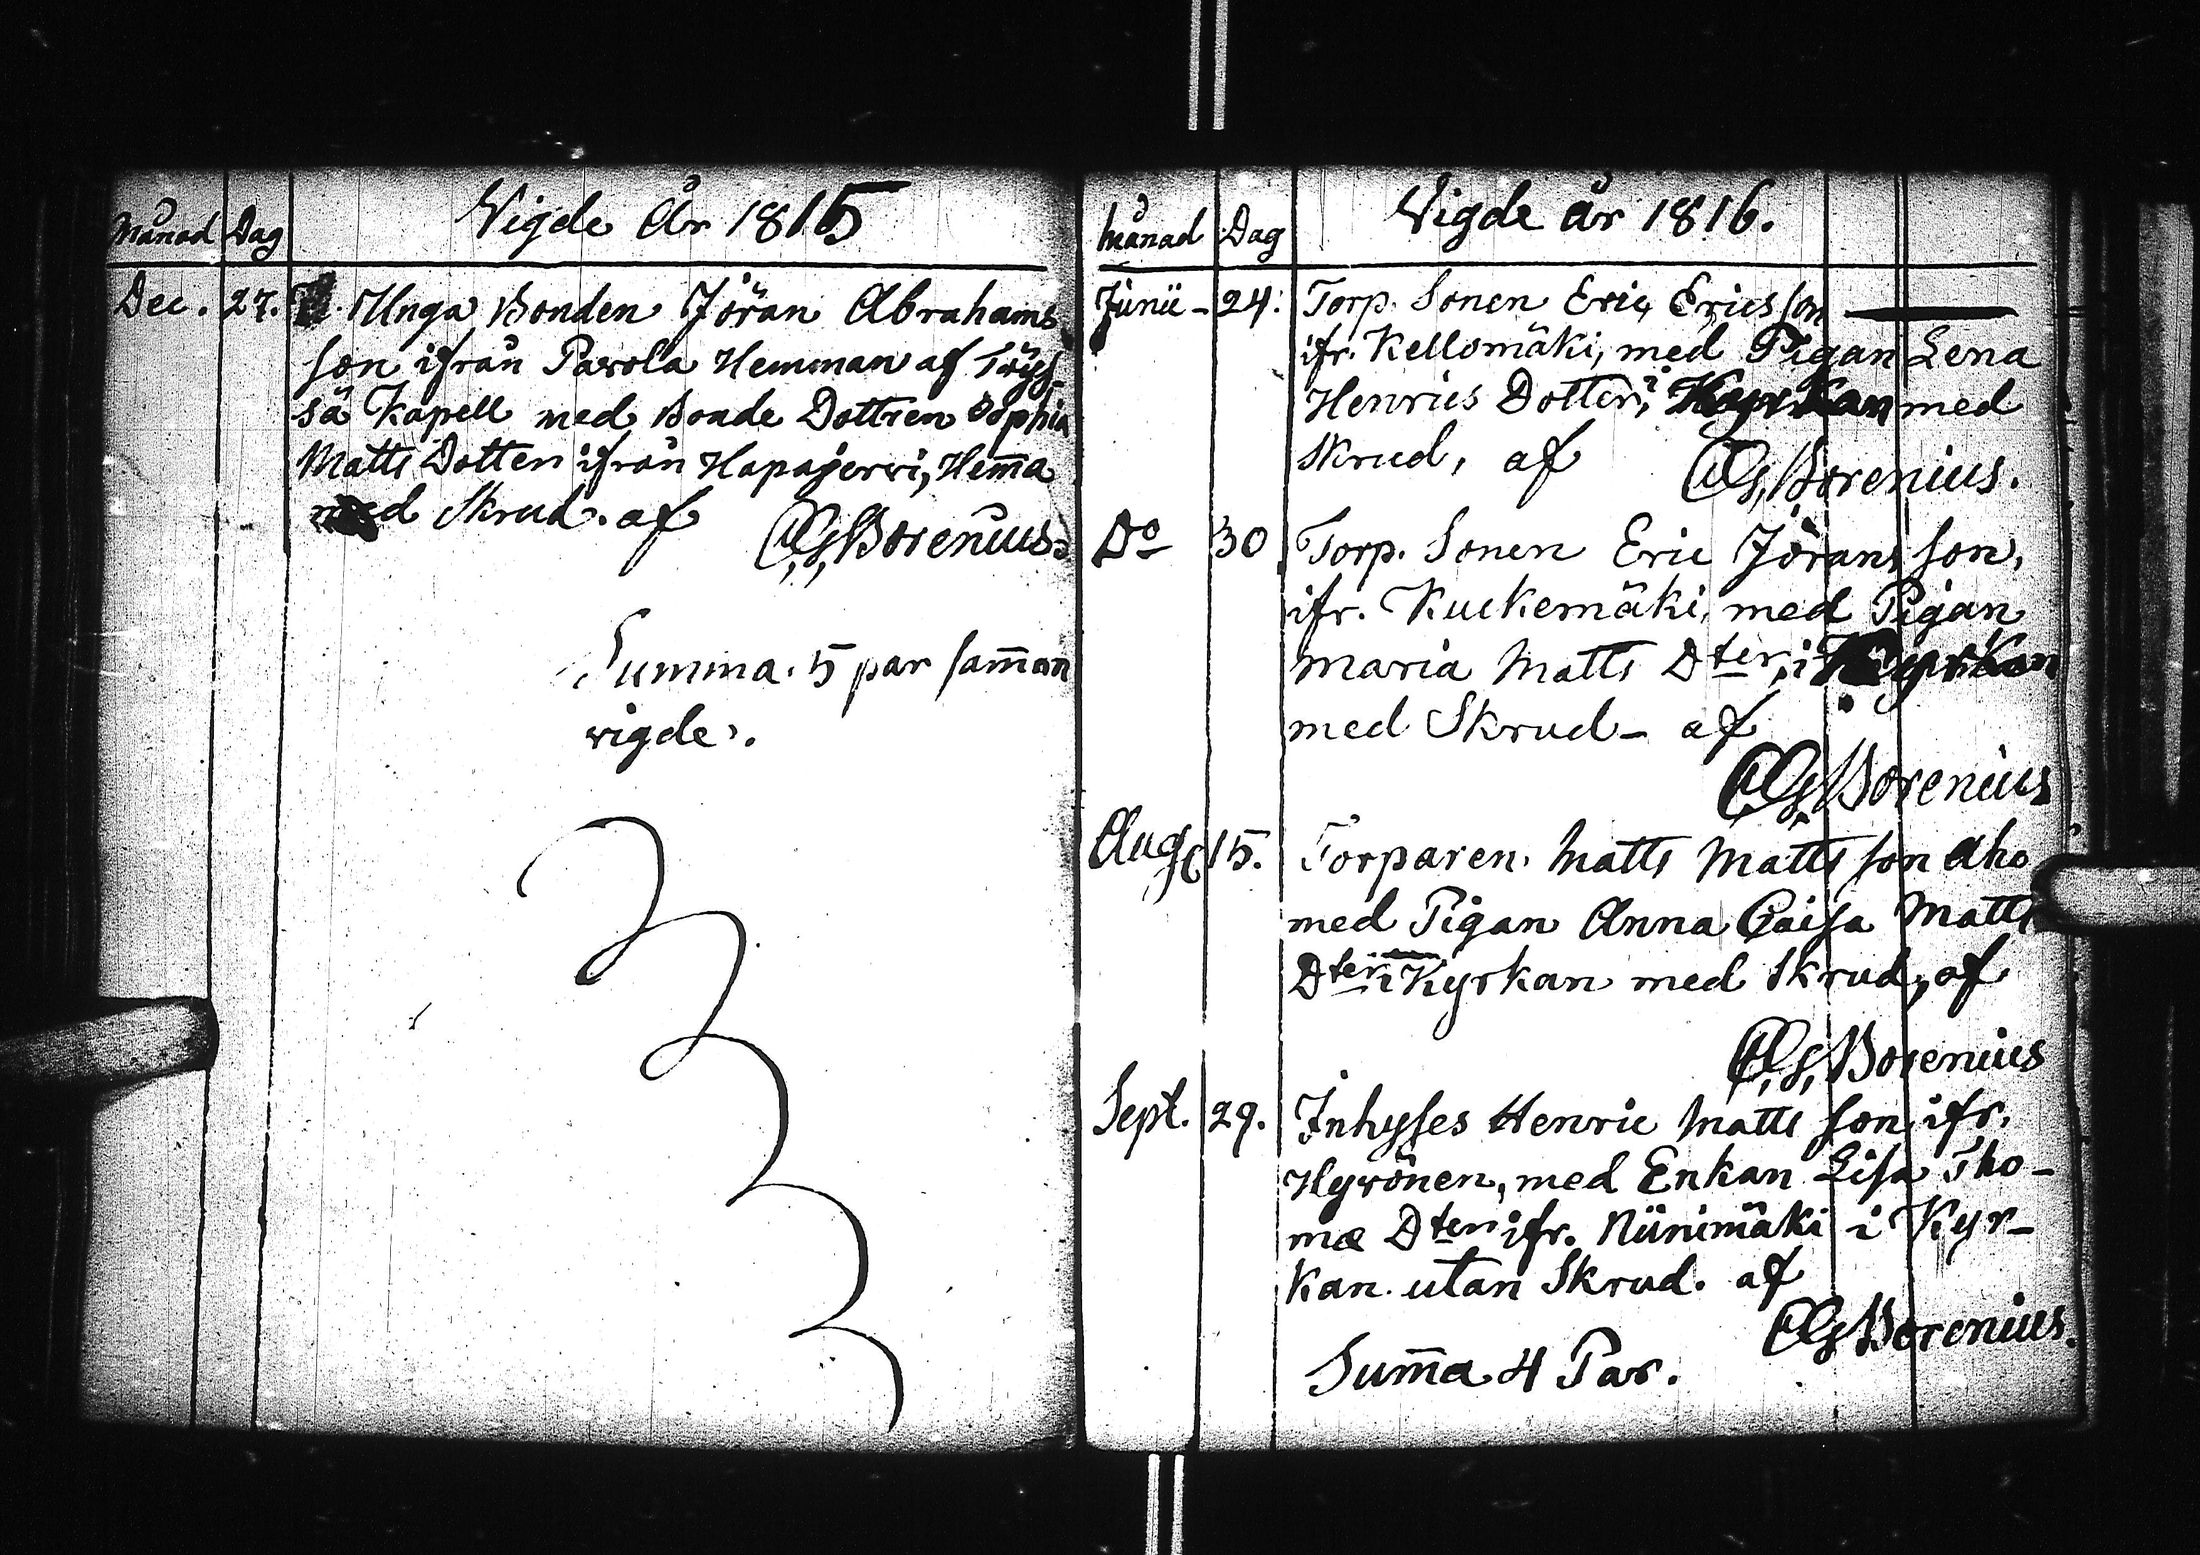 Vigde År 1815
Månad Dag
Dec. 27. Unga Bonden Jöran Abrahams
son ifrån Parola Hemman af Tŏys-
sä Kapell med Bonde Dottren Sophia
Matts Dotter ifrån Hapajerwi, Hem̄a
med Skrud. af
Borenius
Summa. 5 par sam̄an
vigde.
Vigde år 1816.
Månad Dag
Junii - 24. Torp. Sonen Eric Ericsson
ifr. Kellomäki, med Pigan Lena
Henrics Dotter, i Kyrkan med
Skrud, af
Borenius.
Do 30 Torp. Sonen Eric Jörans son,
ifr. Kuckemäki, med Pigan
Maria Matts Dter, i Kyrkan
med Skrud - af
Borenius
Aug. 15. Torparen Matts Matts son Aho
med Pigan Anna Caisa Matts
Dter i Kyrkan med Skrud, af
Borenius
Sept. 29. Inhyses Henric Matts son ifr.
Hyrönen, med Enkan Lisa Tho-
mæ Dter ifr. Niinimäki i Kyr-
kan utan Skrud. af
Borenius.
Sum̄a 4 Par.